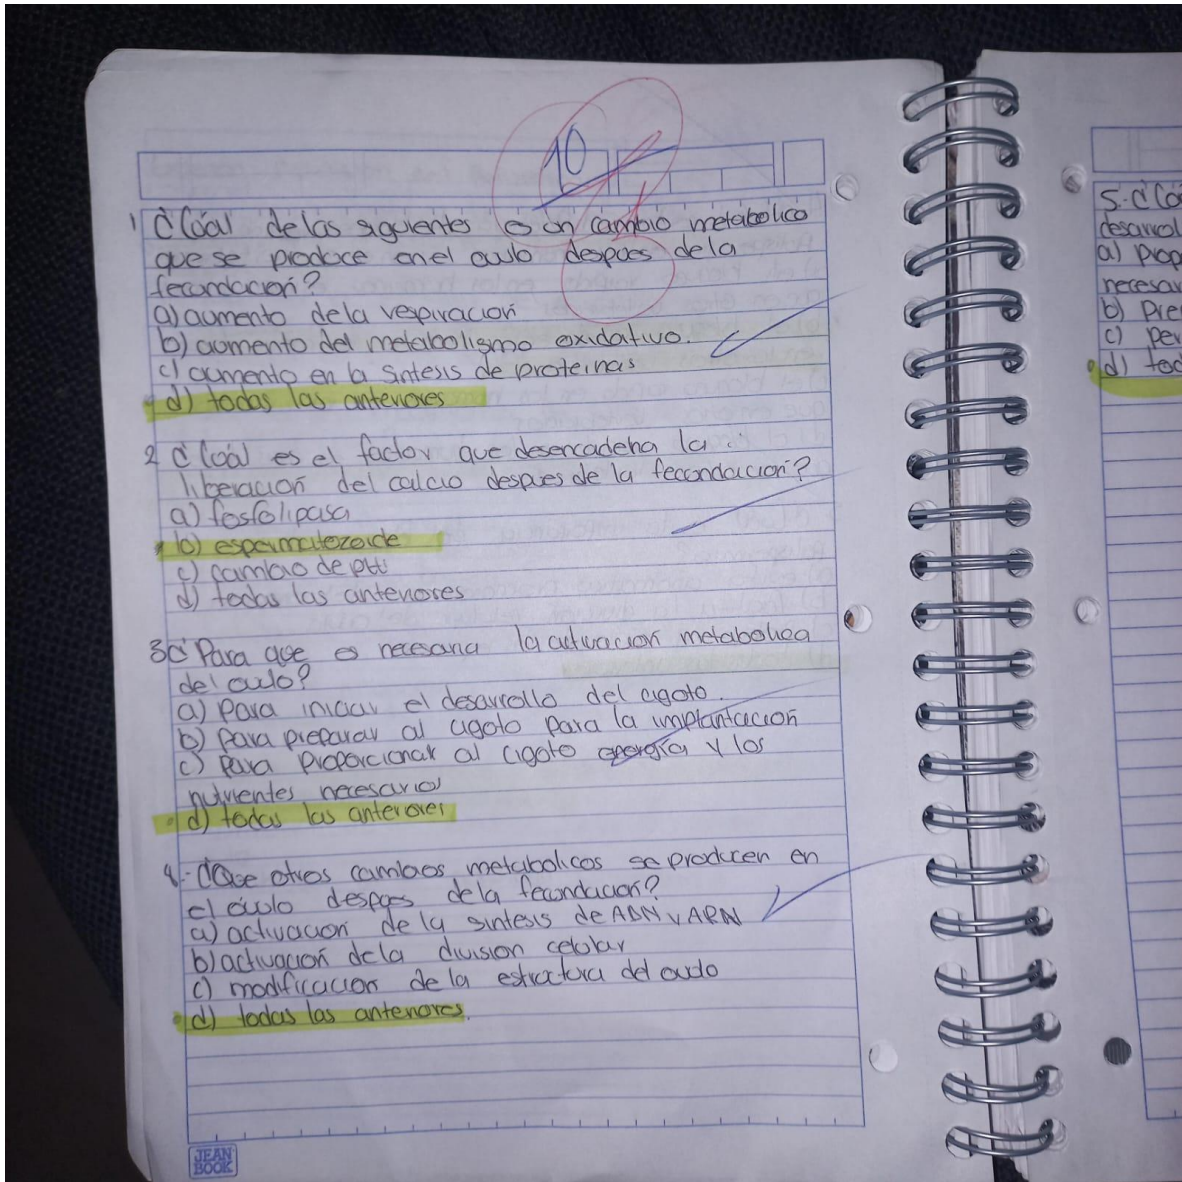 10
1 ¿Cúal de las siguientes es un cambio metabolico
que se produce en el ovulo despues de la
fecundación?
a) aumento de la respiración
b) aumento del metabolismo oxidativo.
c) aumento en la sintesis de proteinas
d) todas las anteriores
2 ¿Cuál es el factor que desencadena la
liberación del calcio despues de la fecondación?
a) fosfolipasa
b) espermatozoide
c) cambio de pH
d) todas las anteriores
3 ¿Para que es necesaria la activación metabolica
del ovulo?
a) para iniciar el desarrollo del cigoto.
b) para preparar al cigoto para la implantación
c) para proporcionar al cigoto energía y los
nutrientes necesarios
d) todas las anteriores
4.- ¿Que otros cambios metabolicos se producen en
el óvulo despues de la fecundación?
a) activación de la sintesis de ADN y ARN
b) activación de la division celular
c) modificación de la estructura del ovulo
d) todas las anteriores.
JEAN
BOOK
5.- ¿Cúa
desarrol
a) prop
necesar
b) Pre
c) per
d) tod